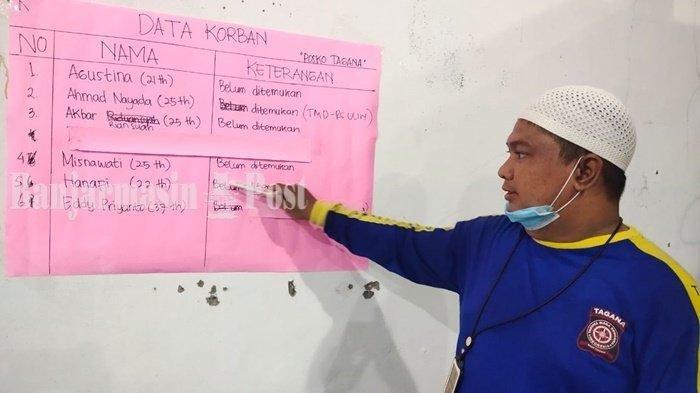 DATA KORBAN
"POSKO TAGANA"
NO NAMA KETERANGAN
1. Agustina (21th) Belum ditemukan
2. Ahmad Nayada (25th) Belum ditemukan (TMD-RS ULIN)
3. Akbar (25th) Belum ditemukan
4 Misnawati (25th) Belum ditemukan
5 Hanafi (22 th) Belum
6 Eddy Priyanto (37th) Belum
Banjarmasin Post
TAGANA